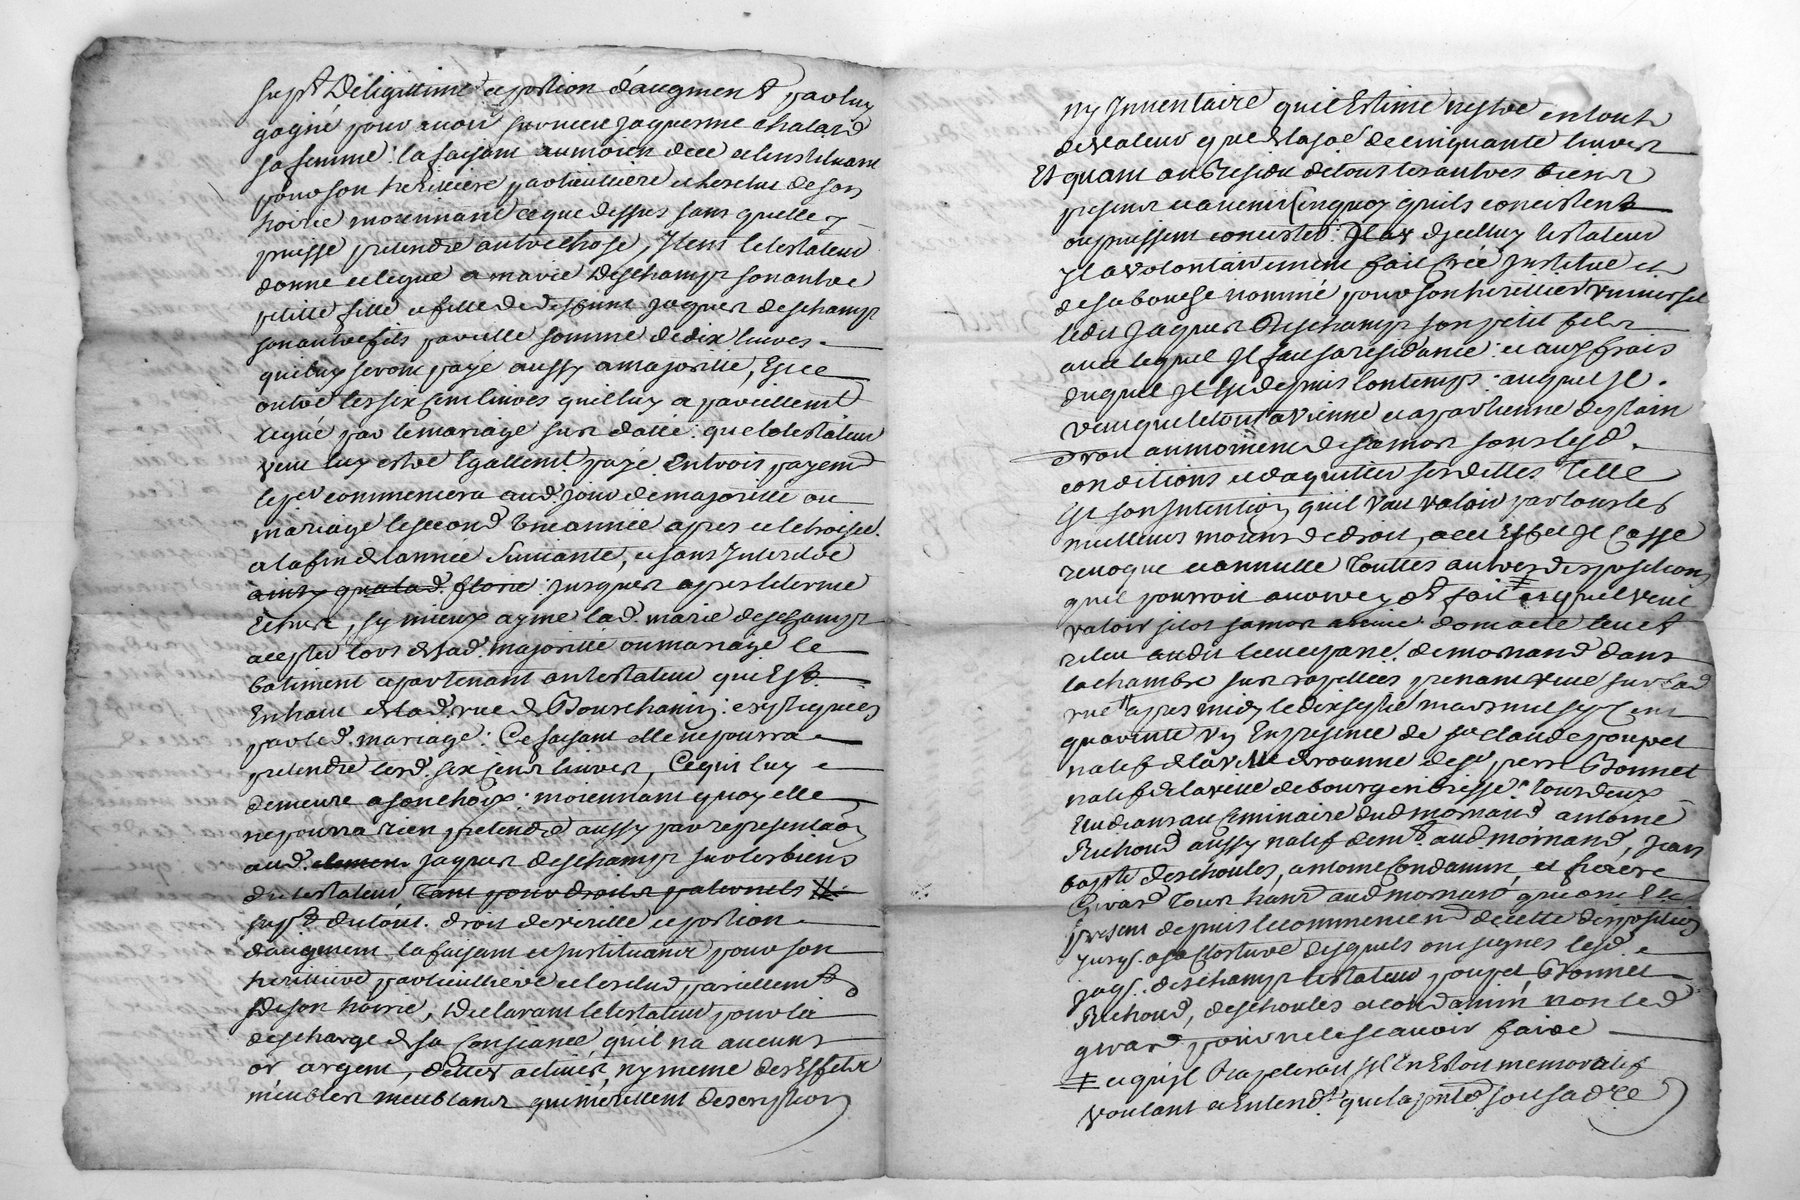 sup.t De ligittime et portion d'augment par luy
gagné pour avoir survecu jaquemme chalard
sa femme : la faisant au moien de ce et l'instituant
pour son heritiere particulliere et l'exclud de son
hoirie moiennant ce que dessus sans quelle y
puisse pretendre autre chose, Item le testateur
donne et legue a marie Deschamps son autre
petitte fille et fille de deffunt jaques deschamps
son autre fils pareille somme de dix livres
qui luy seront payé aussy a majorité, Et ce
outre les six cent livres quil luy a pareillemt
legué par le mariage sus datté : que le testateur
veut luy estre Egallemt payé en trois payemd
le per commencera aud. jour de majorité ou
mariage le second Une année apres et le troisie.
a la fin de l'année suivante, et sans Interest
ainsy que lad. florie jusques apres le terme
Echus, sy mieux ayme lad. marie deschamps
accepter lors de sad. majorité ou mariage le
batiment apartenant au testateur qui Est
En haut de lad. rue de Bourchanin : expliquée
par led. mariage : Ce faisant elle ne pourra
pretendre lesd. six cens livres, Ce qui luy
demeure a son choix : moiennant quoy elle
ne pourra rien pretendre aussy par representaon
aud. jaques deschamps sur les biens
du testateur tant pour droits paternels
sup.t du tout. droit de vieille et portion
d'augment la faisant et Instituant pour son
heritiere particulliere et l'exclud pareillemt
de son hoirie, Declarant le testateur pour la
descharge de sa Consiance qu'il n'a aucuns
or argent, dettes actives, ny meme des Effets
meubles meublans qui meritent description
ny Inventaire quil Estime n'estre en tout
de valeur que de la so.e de cinquante livres
Et quant au Residu de tous les autres biens
presens et avenir En quoy quils concistent
ou puissent concister : d'jcelluy testateur
Il a volontairement fait créé Institue et
de sa bouche nommé pour son heritier universel
ledit jaques Deschamps son petit fils
avec lequel Il fait sa residance : et aux frais
duquel Il Est depuis lontemps : auquel Il
veut que le tout avienne et apartienne de plain
droit au moment de sa mort sous lesd.
conditions et d'aquitter ses dettes Telle
Est son Intention quil Veut valoir par tous les
meilleurs moiens de droit, a cet Effet Il Casse
revoque et annulle Touttes autres dispositions
quil pourroit avoir cy dt fait ‡ et quel veut
valoir sitot sa mort arivée dont acte leu et
releu audit lieu et parr. de mornand dans
la chambre sus rapellées prenant vüe sur lad
rue apres midy le dixseptie mars mil sept cent
quarente Vn En presence de sr claude poupet
natif de la ville de roanne de sr pierre Bonnet
natif de la ville de bourg en bresse Tous deux
Etudians au seminaire dud mornand antoine
Richoud aussy natif demt. aud. mornand, jean
baptte deschoules, antoine Condamin, et fiacre
Givard tous habd aud mornand qui ont Esté
presens depuis le commencemd de cette disposition
jusqs. a sa closture desquels ont signes lesd.
jaqs. deschamps testateur poupet, Bonnet
Richoud, deschoules et condamin non led
givard pour ne le sçavoir faire
‡ et qu'jl Rapeleroit s'jl En Estoit memoratif
voulant et Entendt que la pnte soit sa dre